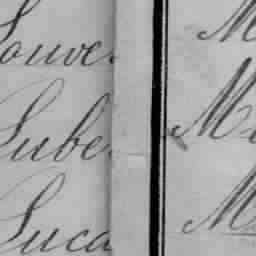 Louve
Lube
Luca
M
M
M